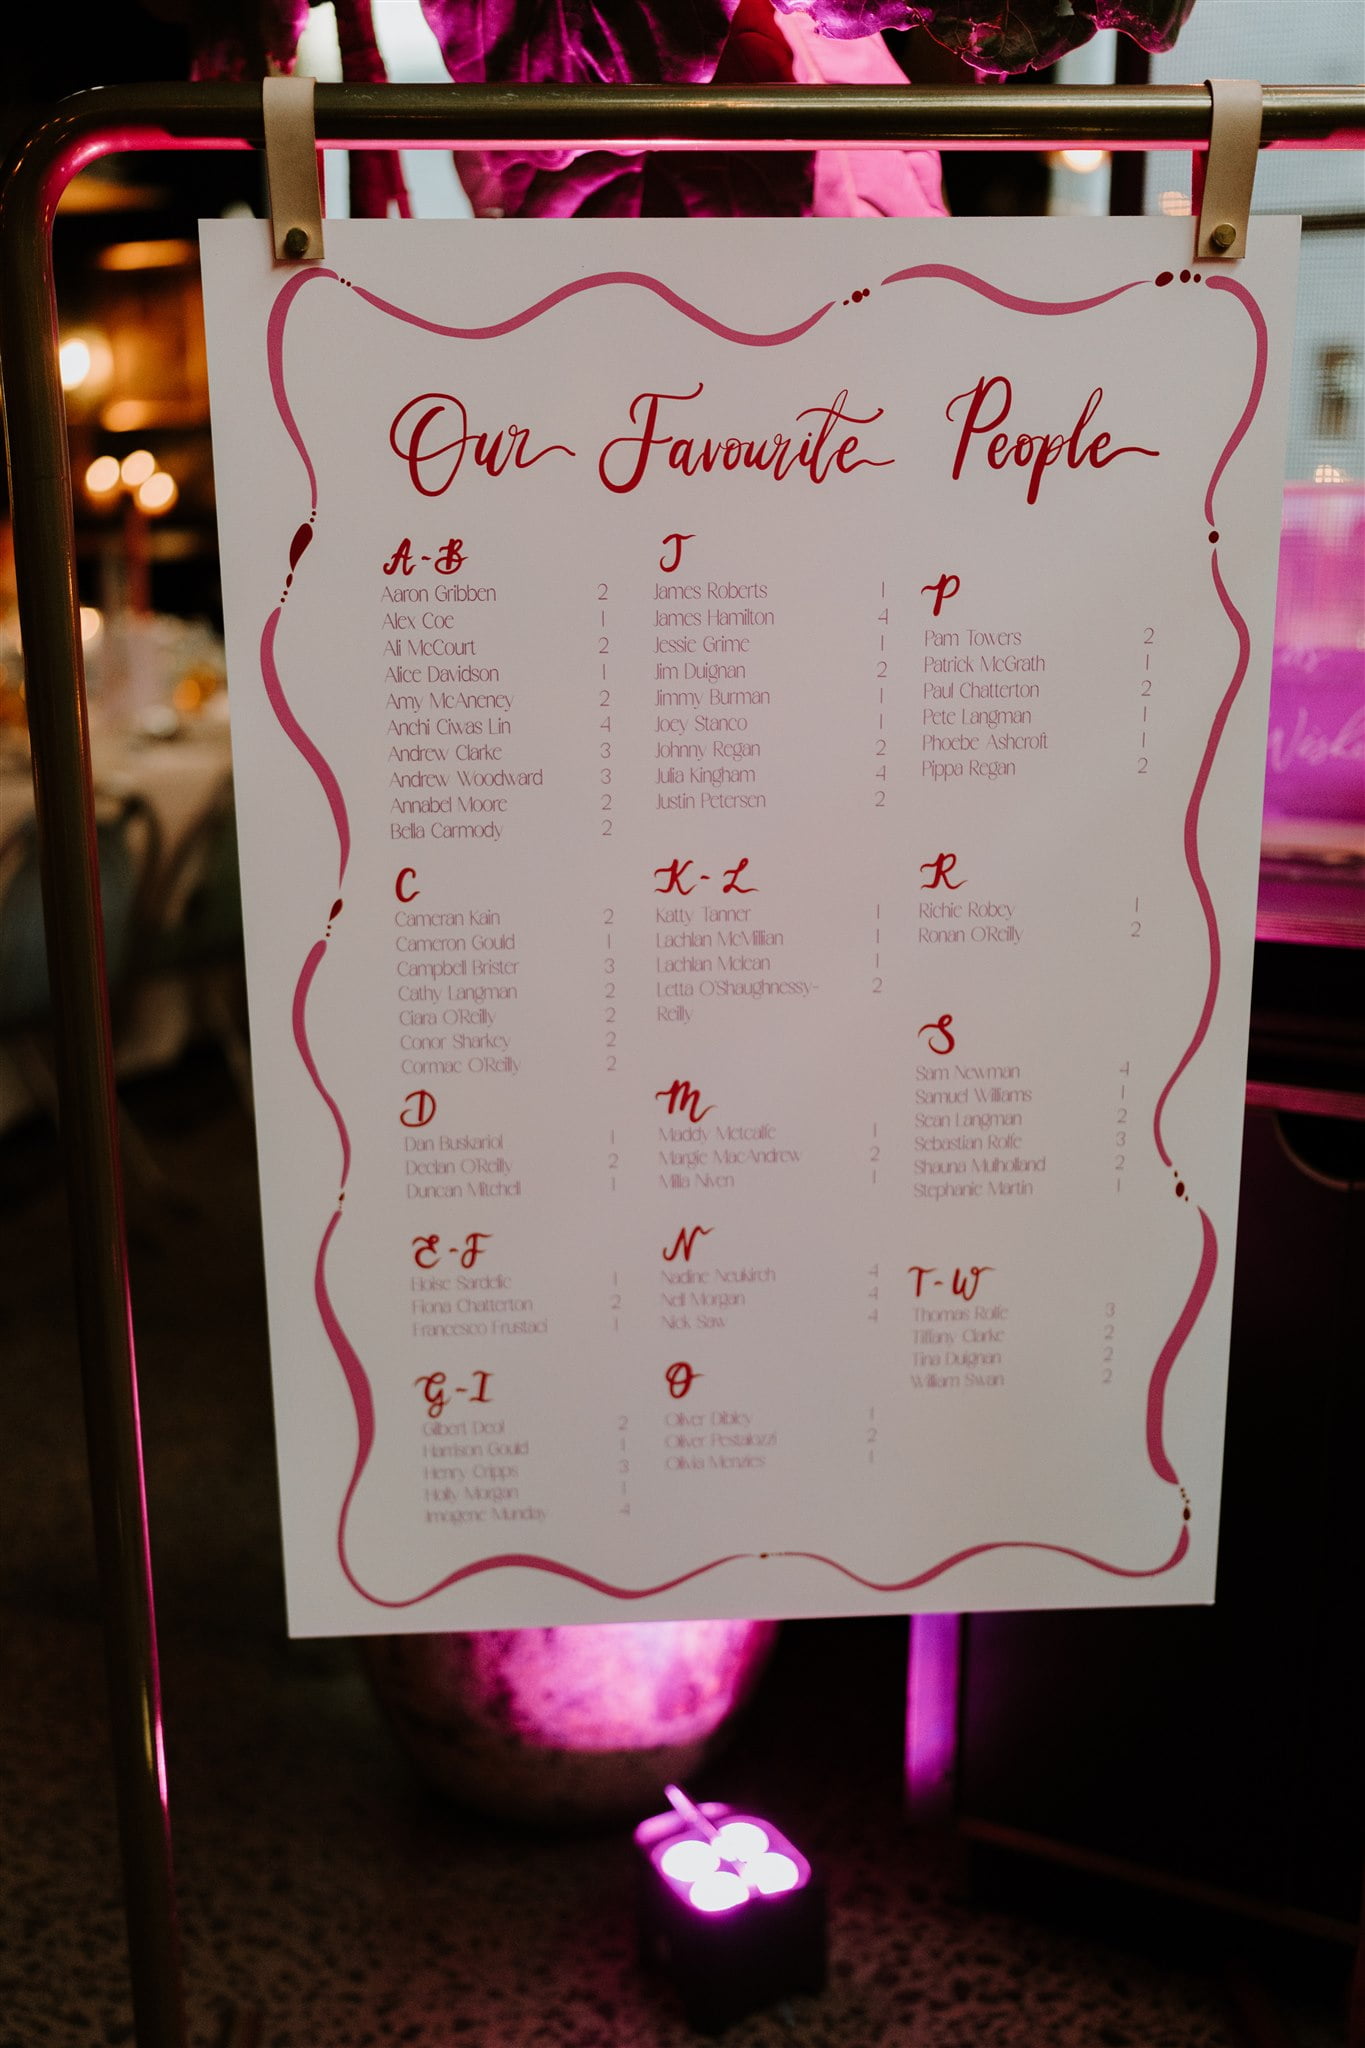 Our Favourite People
A-B
Aaron Gribben 2
Alex Coe 1
Ali McCourt 2
Alice Davidson 1
Amy McAneney 2
Anchi Ciwas Lin 4
Andrew Clarke 3
Andrew Woodward 3
Annabel Moore 2
Bella Carmody 2
C
Cameran Kain 2
Cameron Gould 1
Campbell Brister 3
Cathy Langman 2
Ciara O'Reilly 2
Conor Sharkey 2
Cormac O'Reilly 2
D
Dan Buskariol 1
Declan O'Reilly 2
Duncan Mitchell 1
E-F
Eloise Sardelic 1
Fiona Chatterton 2
Francesco Frustaci 1
G-I
Gilbert Deol 2
Harrison Gould 1
Henry Cripps 3
Holly Morgan 1
Imogene Munday 4
J
James Roberts 1
James Hamilton 4
Jessie Grime 1
Jim Duignan 2
Jimmy Burman 1
Joey Stanco 1
Johnny Regan 2
Julia Kingham 4
Justin Petersen 2
K-L
Katty Tanner 1
Lachlan McMillian 1
Lachlan Mclean 1
Letta O'Shaughnessy- 2
Reilly
M
Maddy Metcalfe 1
Margie MacAndrew 2
Milla Niven 1
N
Nadine Neukirch 4
Nell Morgan 4
Nick Saw 4
O
Oliver Dibley 1
Oliver Pestalozzi 2
Olivia Menzies 1
P
Pam Towers 2
Patrick McGrath 1
Paul Chatterton 2
Pete Langman 1
Phoebe Ashcroft 1
Pippa Regan 2
R
Richie Robey 1
Ronan O'Reilly 2
S
Sam Newman 4
Samuel Williams 1
Sean Langman 2
Sebastian Rolfe 3
Shauna Mulholland 2
Stephanie Martin 1
T-W
Thomas Rolfe 3
Tiffany Clarke 2
Tina Duignan 2
William Swan 2